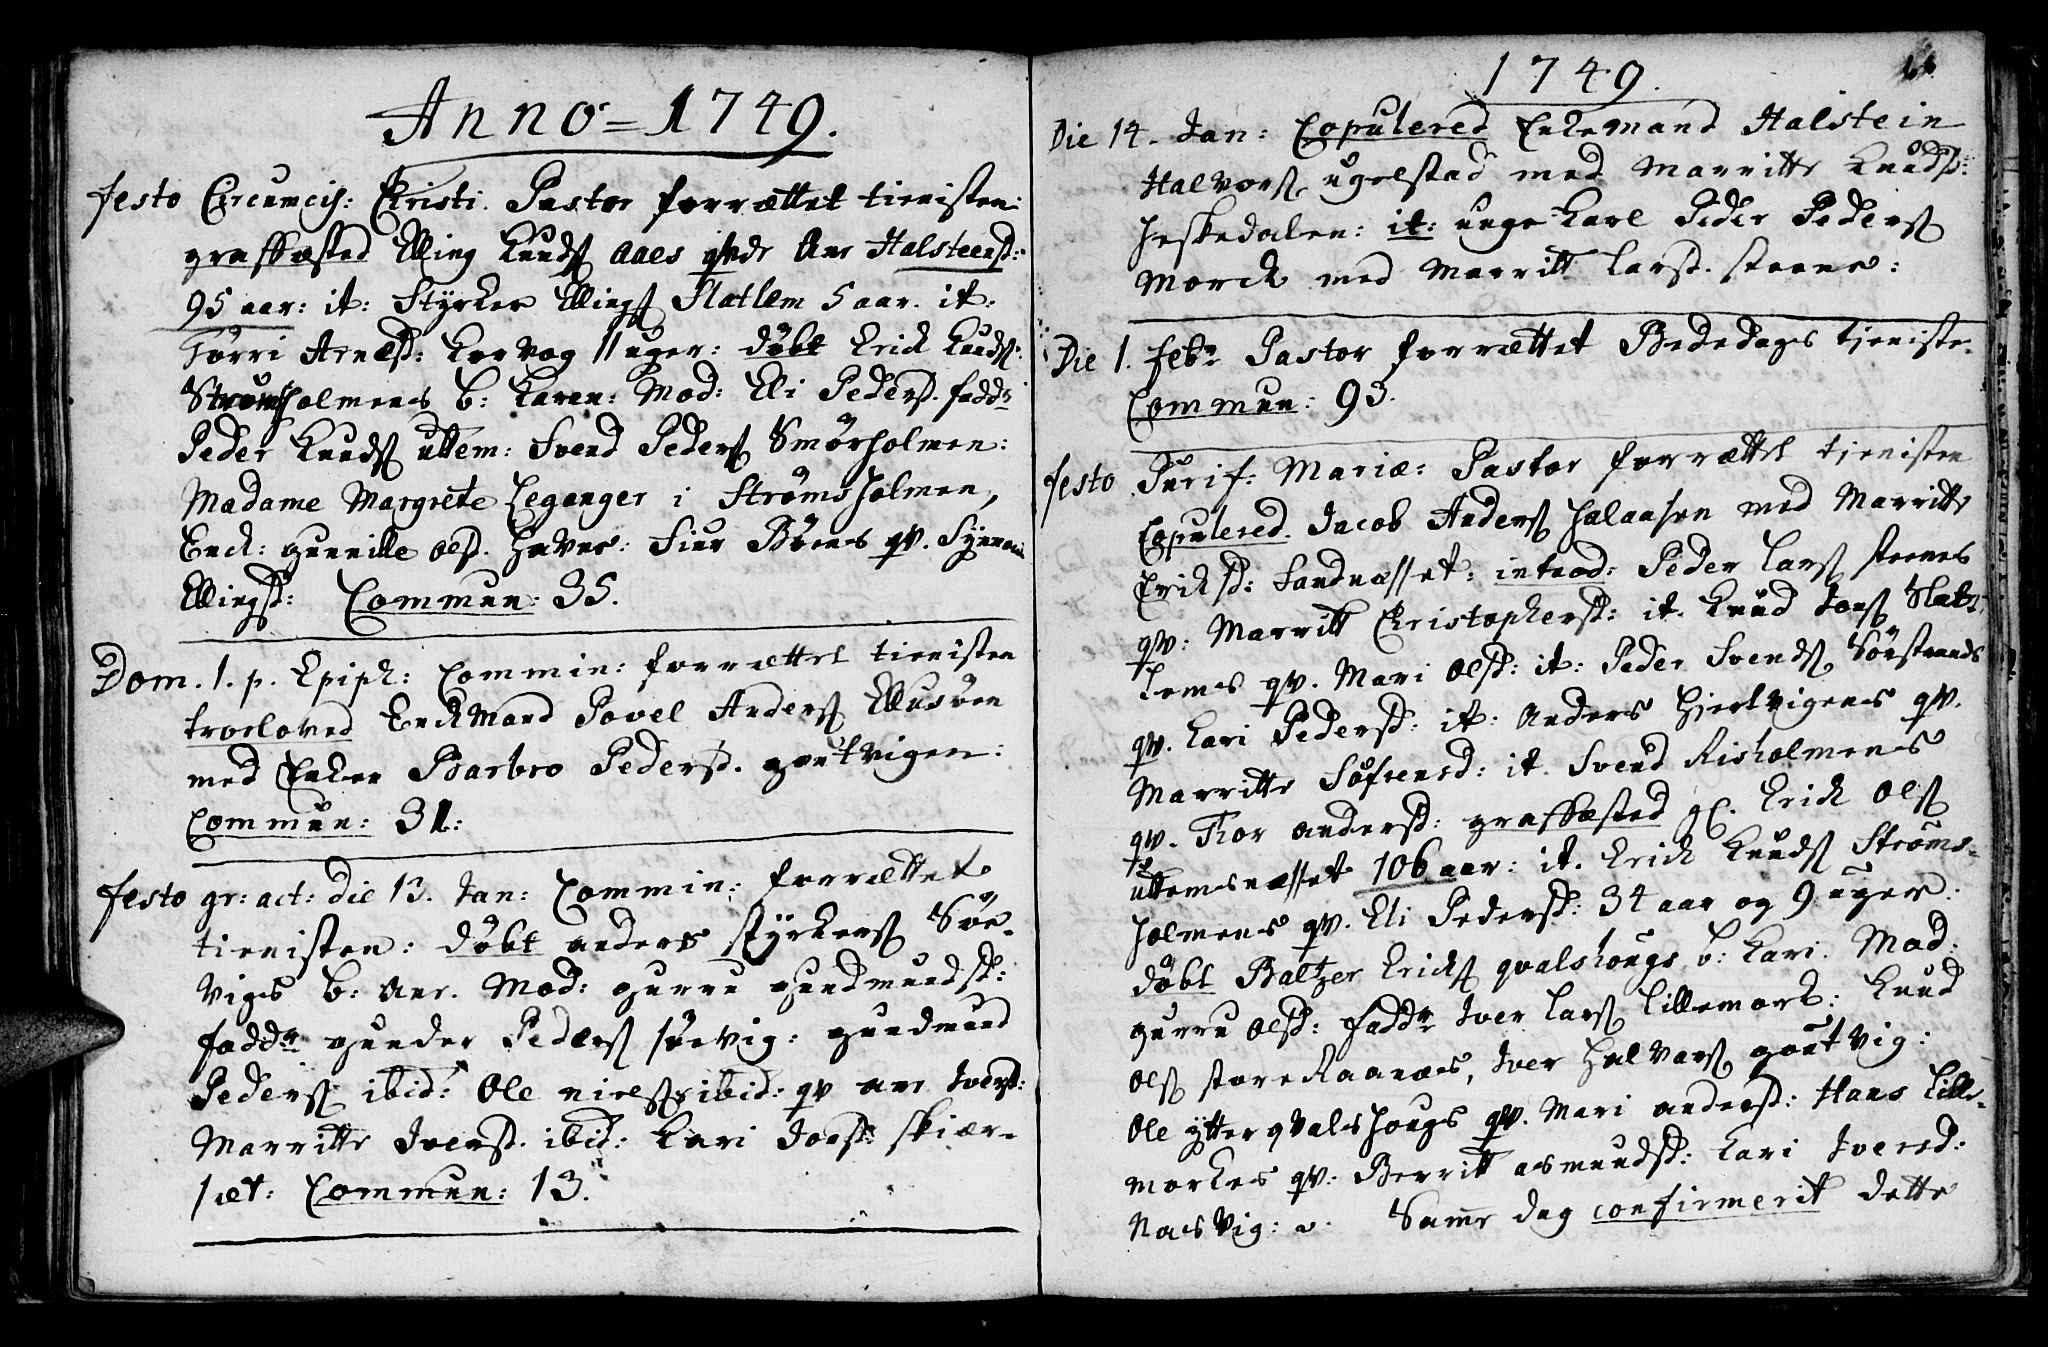 Anno = 1749.
festo Circumcis: Christi. Pastor forrættet tienisten:
graffæsted Elling Knuds Aaes qvde Ane Halsteensd:
95 aar: it: Styrker Ellings Slatlem 5 aar. it:
Torri Arnesd: Korvog 11 uger: døbt Erich Knuds:
Strømsholmens b: Karen: Mod: Eli Pedersd. faddr
Peder Knuds uttem: Svend Peders Smörholmen:
Madame Margrete Leganger i Strømsholmen,
Enck: gunnille olsd. Havnes: Siur Böens qv. Synnevi
Ellingsd: Commun: 35.
Dom. 1. p. Epiph: Commin: forrættet tienisten
troeloved Enckmand Povel Anders
med Encken Barbro Pedersd. goutvigen:
Commun: 31:
festo gr: act: die 13. Jan: Commin: forrættet
tienisten: døbt anders styrkers Søe-
vigs b: Ane. Mod: gurru gundmundsd:
faddr gunder Peders söevig: gundmund
Peders ibid: Ole niels ibid: qv ane Iversd:
Marritte Iversd. ibid: Kari Joensd: skiær-
sæt: Commun: 13.
1749.
Die 14. Jan: Copulered Enkemand Halstein
Halvors ugelstad med Marritte Knudsd:
Heskedalen: it: unge Karl Peder Peders
Morck med Marritt Larsd. steene:
Die 1. febr Pastor forrættet Bededags tieniste.
Commun: 93.
festo Purif: Mariæ: Pastor forrættet tienisten
Copulered. Jacob Anders Halaasen med Marritte
Erichsd: Sandnæsset: introd: Peder Lars steenes
qv: Marritt Christophersd: it. Knud Jons Slatt-
lems qv. Mari Olsd: it: Peder Svends Sörstrands
qv. Kari Pedersd: it: Anders Hjertvigens qv.
Marritte Söfrensd: it. Svend Risholmens
qv. Thor andersd: graffæsted gl. Erich Ols
uttemsnæsset 106 aar: it. Erich Knuds Ströms-
holmens qv. Eli Pedersd: 34 aar og 9 uger:
døbt Baltzer Erichs qvalshougs b: Kari. Mod:
gurru olsd: faddr Iver Lars Lillemork: Knud
Ols store Raanæs, Iver Halvors goutvig:
Ole ytter qvalshougs qv. Mari andersd: Hans Lille-
morkes qv: Berritt asmundsd: Kari Iversd:
Nasvig: Same dag confirmerit dette